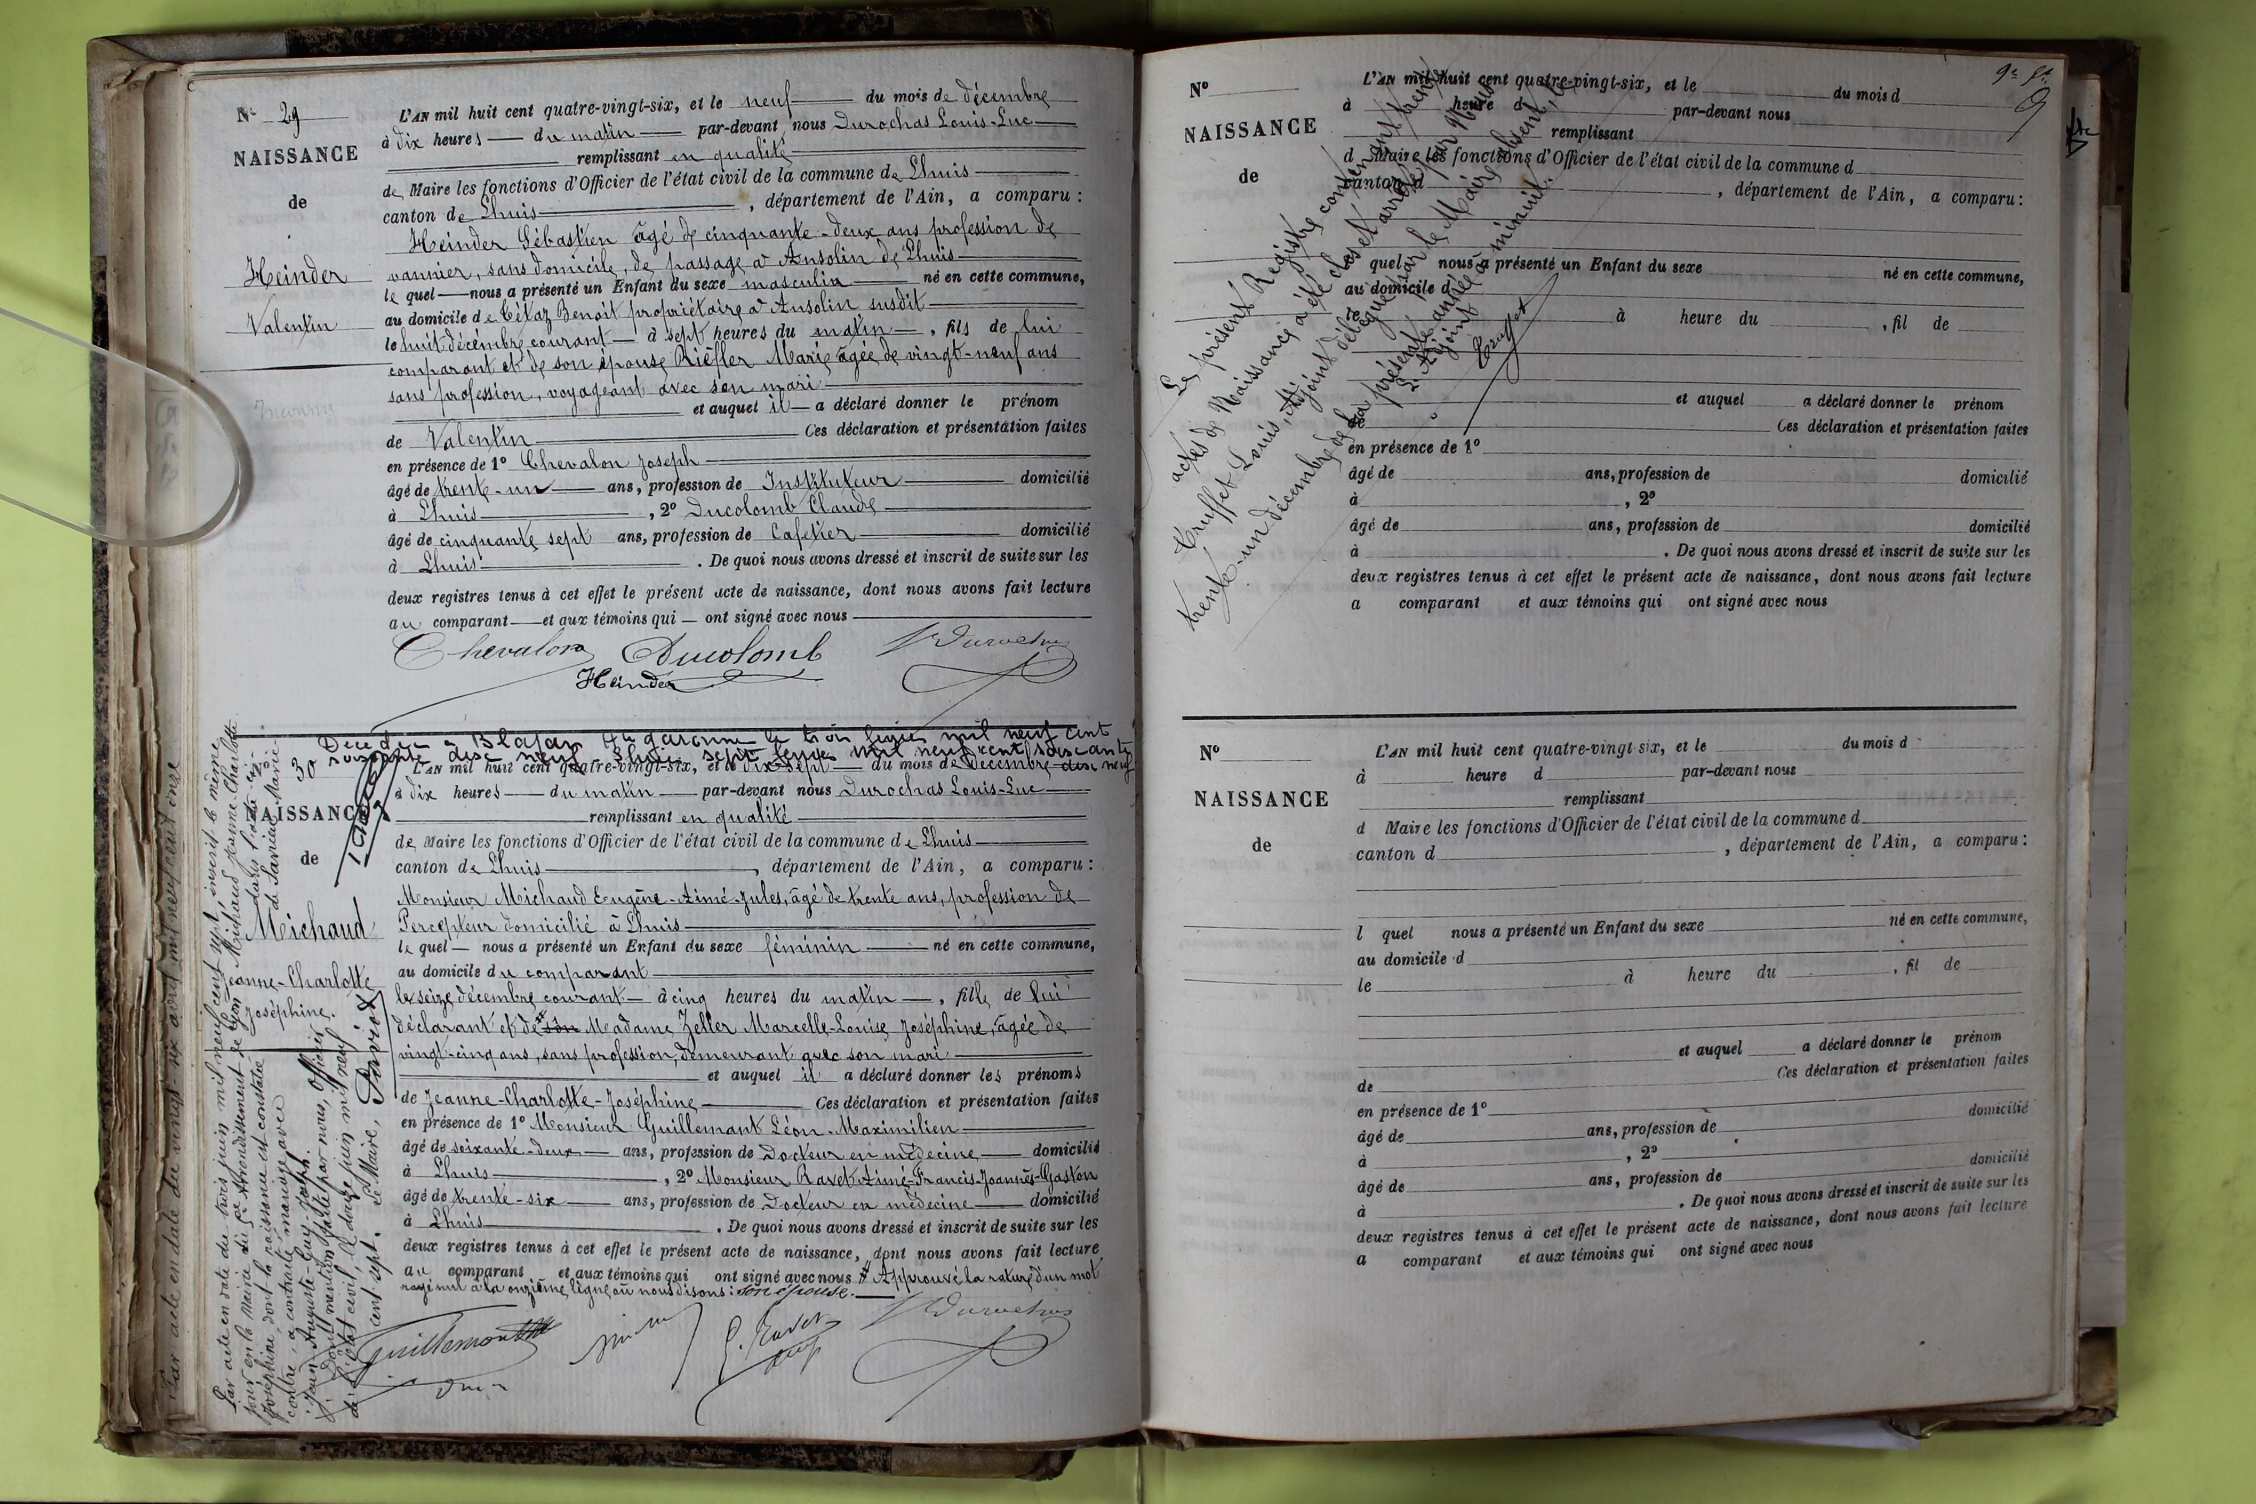 N° 29
NAISSANCE
de
Heinder
Valentin
L'AN mil huit cent quatre-vingt-six, et le neuf du mois de décembre
à dix heures du matin par-devant nous Durochas Louis-Luc
remplissant en qualité
de Maire les fonctions d'Officier de l'état civil de la commune de Lhuis
canton de Lhuis, département de l'Ain, a comparu :
Heinder Sébastien âgé de cinquante-deux ans profession de
vannier, sans domicile, de passage à Ansolin de Lhuis
le quel nous a présenté un Enfant du sexe masculin né en cette commune,
au domicile de Cétaz Benoit propriétaire à Ansolin susdit
le huit décembre courant à sept heures du matin, fils de lui
comparant et de son épouse Rièfler Marie âgée de vingt-neuf ans
sans profession, voyageant avec son mari
et auquel il a déclaré donner le prénom
de Valentin Ces déclaration et présentation faites
en présence de 1° Chevalon Joseph
âgé de trente-un ans, profession de Instituteur domicilié
à Lhuis, 2° Ducolomb Claude
âgé de cinquante sept ans, profession de Cafetier domicilié
à Lhuis. De quoi nous avons dressé et inscrit de suite sur les
deux registres tenus à cet effet le présent acte de naissance, dont nous avons fait lecture
au comparant et aux témoins qui ont signé avec nous
Chevalon Ducolomb Durochas
Heinder
Décédée à Blajan Hte garonne le trois mil neuf cent
soixante dix neuf. Lhuis, sept mil neuf cent soixante
dix neuf
30
NAISSANCE
de
Michaud
Jeanne-Charlotte
Joséphine.
L'AN mil huit cent quatre-vingt-six, et le dix-sept du mois de décembre
à dix heures du matin par-devant nous Durochas Louis-Luc
remplissant en qualité
de Maire les fonctions d'Officier de l'état civil de la commune de Lhuis
canton de Lhuis, département de l'Ain, a comparu :
Monsieur Michaud Eugène-Aimé-Jules, âgé de trente ans, profession de
Percepteur domicilié à Lhuis
le quel nous a présenté un Enfant du sexe féminin né en cette commune,
au domicile du comparant
le seize décembre courant à cinq heures du matin, fille de lui
déclarant et de # son Madame Zeller Marcelle-Louise Joséphine, âgée de
vingt-cinq ans, sans profession, demeurant avec son mari
et auquel il a déclaré donner les prénoms
de Jeanne-Charlotte-Joséphine Ces déclaration et présentation faites
en présence de 1° Monsieur Guillemant Léon-Maximilien
âgé de soixante-deux ans, profession de Docteur en médecine domicilié
à Lhuis, 2° Monsieur Ravet Aimé-Francis-Joannès-Gaston
âgé de trente-six ans, profession de Docteur en médecine domicilié
à Lhuis. De quoi nous avons dressé et inscrit de suite sur les
deux registres tenus à cet effet le présent acte de naissance, dont nous avons fait lecture
au comparant et aux témoins qui ont signé avec nous # Approuvé la rature d'un mot
rayé nul à la onzième ligne où nous disons : son épouse.
Guillemant G. Ravet Durochas
Par acte en date du trois juin mil neuf cent sept, inscrit le même
jour en la mairie du Arrondissement de Lyon Michaud Jeanne Charlotte
Joséphine dont la naissance est constatée dans l'acte ci
contre, a contracté mariage avec
Jean Auguste Guy Joseph
Dont mention faite par nous, Officier
de l'état civil, le douze juin mil neuf
cent sept. Le Maire,
Par acte en date du vingt-six avril mil neuf cent onze
9e ft
9
N°
NAISSANCE
de
L'AN mil huit cent quatre-vingt-six, et le du mois d
à heure d par-devant nous
remplissant
d Maire les fonctions d'Officier de l'état civil de la commune d
canton d, département de l'Ain, a comparu :
l quel nous a présenté un Enfant du sexe né en cette commune,
au domicile d
le à heure du, fil de
et auquel a déclaré donner le prénom
de Ces déclaration et présentation faites
en présence de 1°
âgé de ans, profession de domicilié
à, 2°
âgé de ans, profession de domicilié
à. De quoi nous avons dressé et inscrit de suite sur les
deux registres tenus à cet effet le présent acte de naissance, dont nous avons fait lecture
a comparant et aux témoins qui ont signé avec nous
Le présent Registre contenant trente
actes de Naissance a été clos et arrêté par Nous
Truffet Louis, Adjoint délégué par le Maire absent, le
trente-un décembre de la présente année à minuit.
L'Adjoint
Truffet
N°
NAISSANCE
de
L'AN mil huit cent quatre-vingt-six, et le du mois d
à heure d par-devant nous
remplissant
d Maire les fonctions d'Officier de l'état civil de la commune d
canton d, département de l'Ain, a comparu :
l quel nous a présenté un Enfant du sexe né en cette commune,
au domicile d
le à heure du, fil de
et auquel a déclaré donner le prénom
de Ces déclaration et présentation faites
en présence de 1°
âgé de ans, profession de domicilié
à, 2°
âgé de ans, profession de domicilié
à. De quoi nous avons dressé et inscrit de suite sur les
deux registres tenus à cet effet le présent acte de naissance, dont nous avons fait lecture
a comparant et aux témoins qui ont signé avec nous